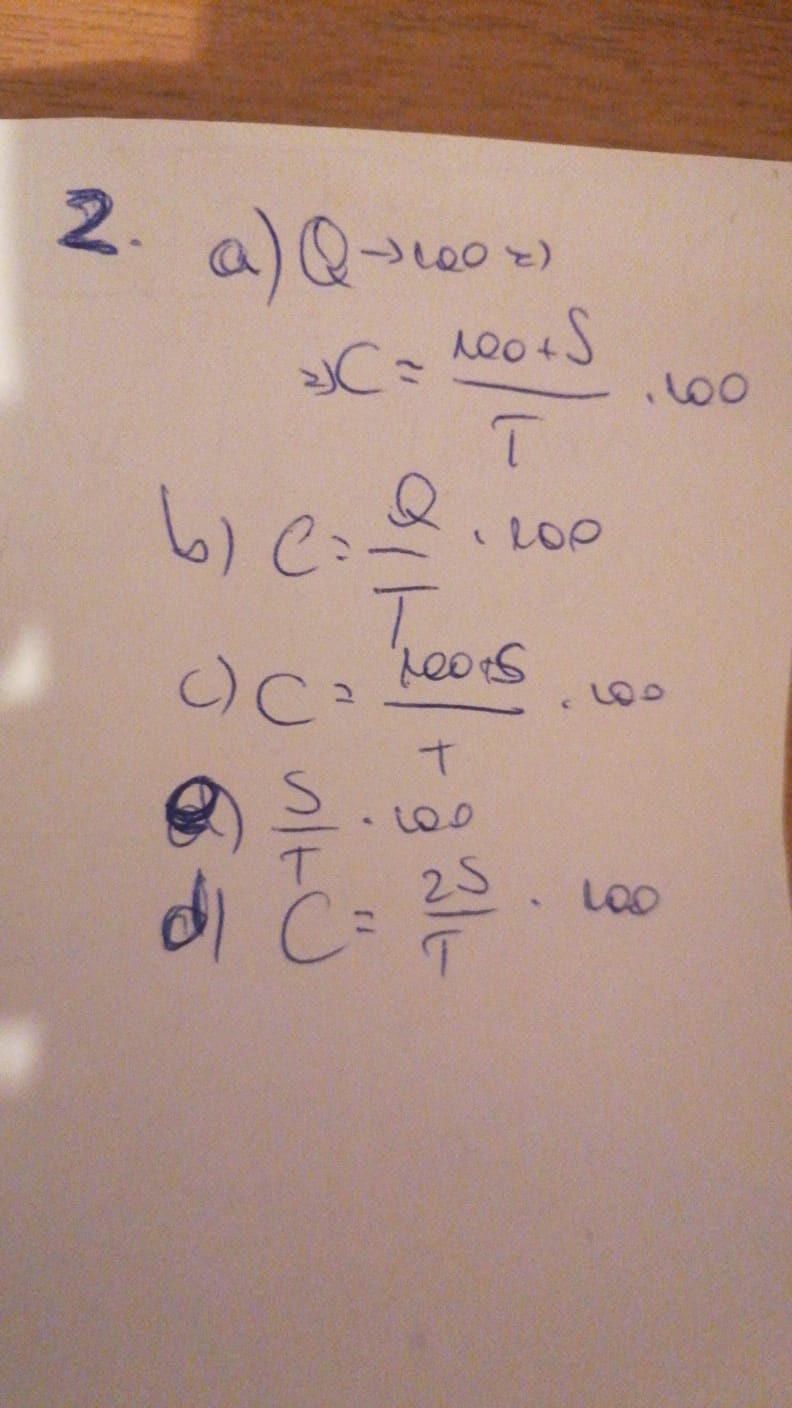 2. a) Q → 100 =>
=> C = \frac{100+S}{T} . 100
b) C = \frac{Q}{T} . 100
c) C = \frac{100+S}{T} . 100
\frac{S}{T} . 100
d) C = \frac{2S}{T} . 100